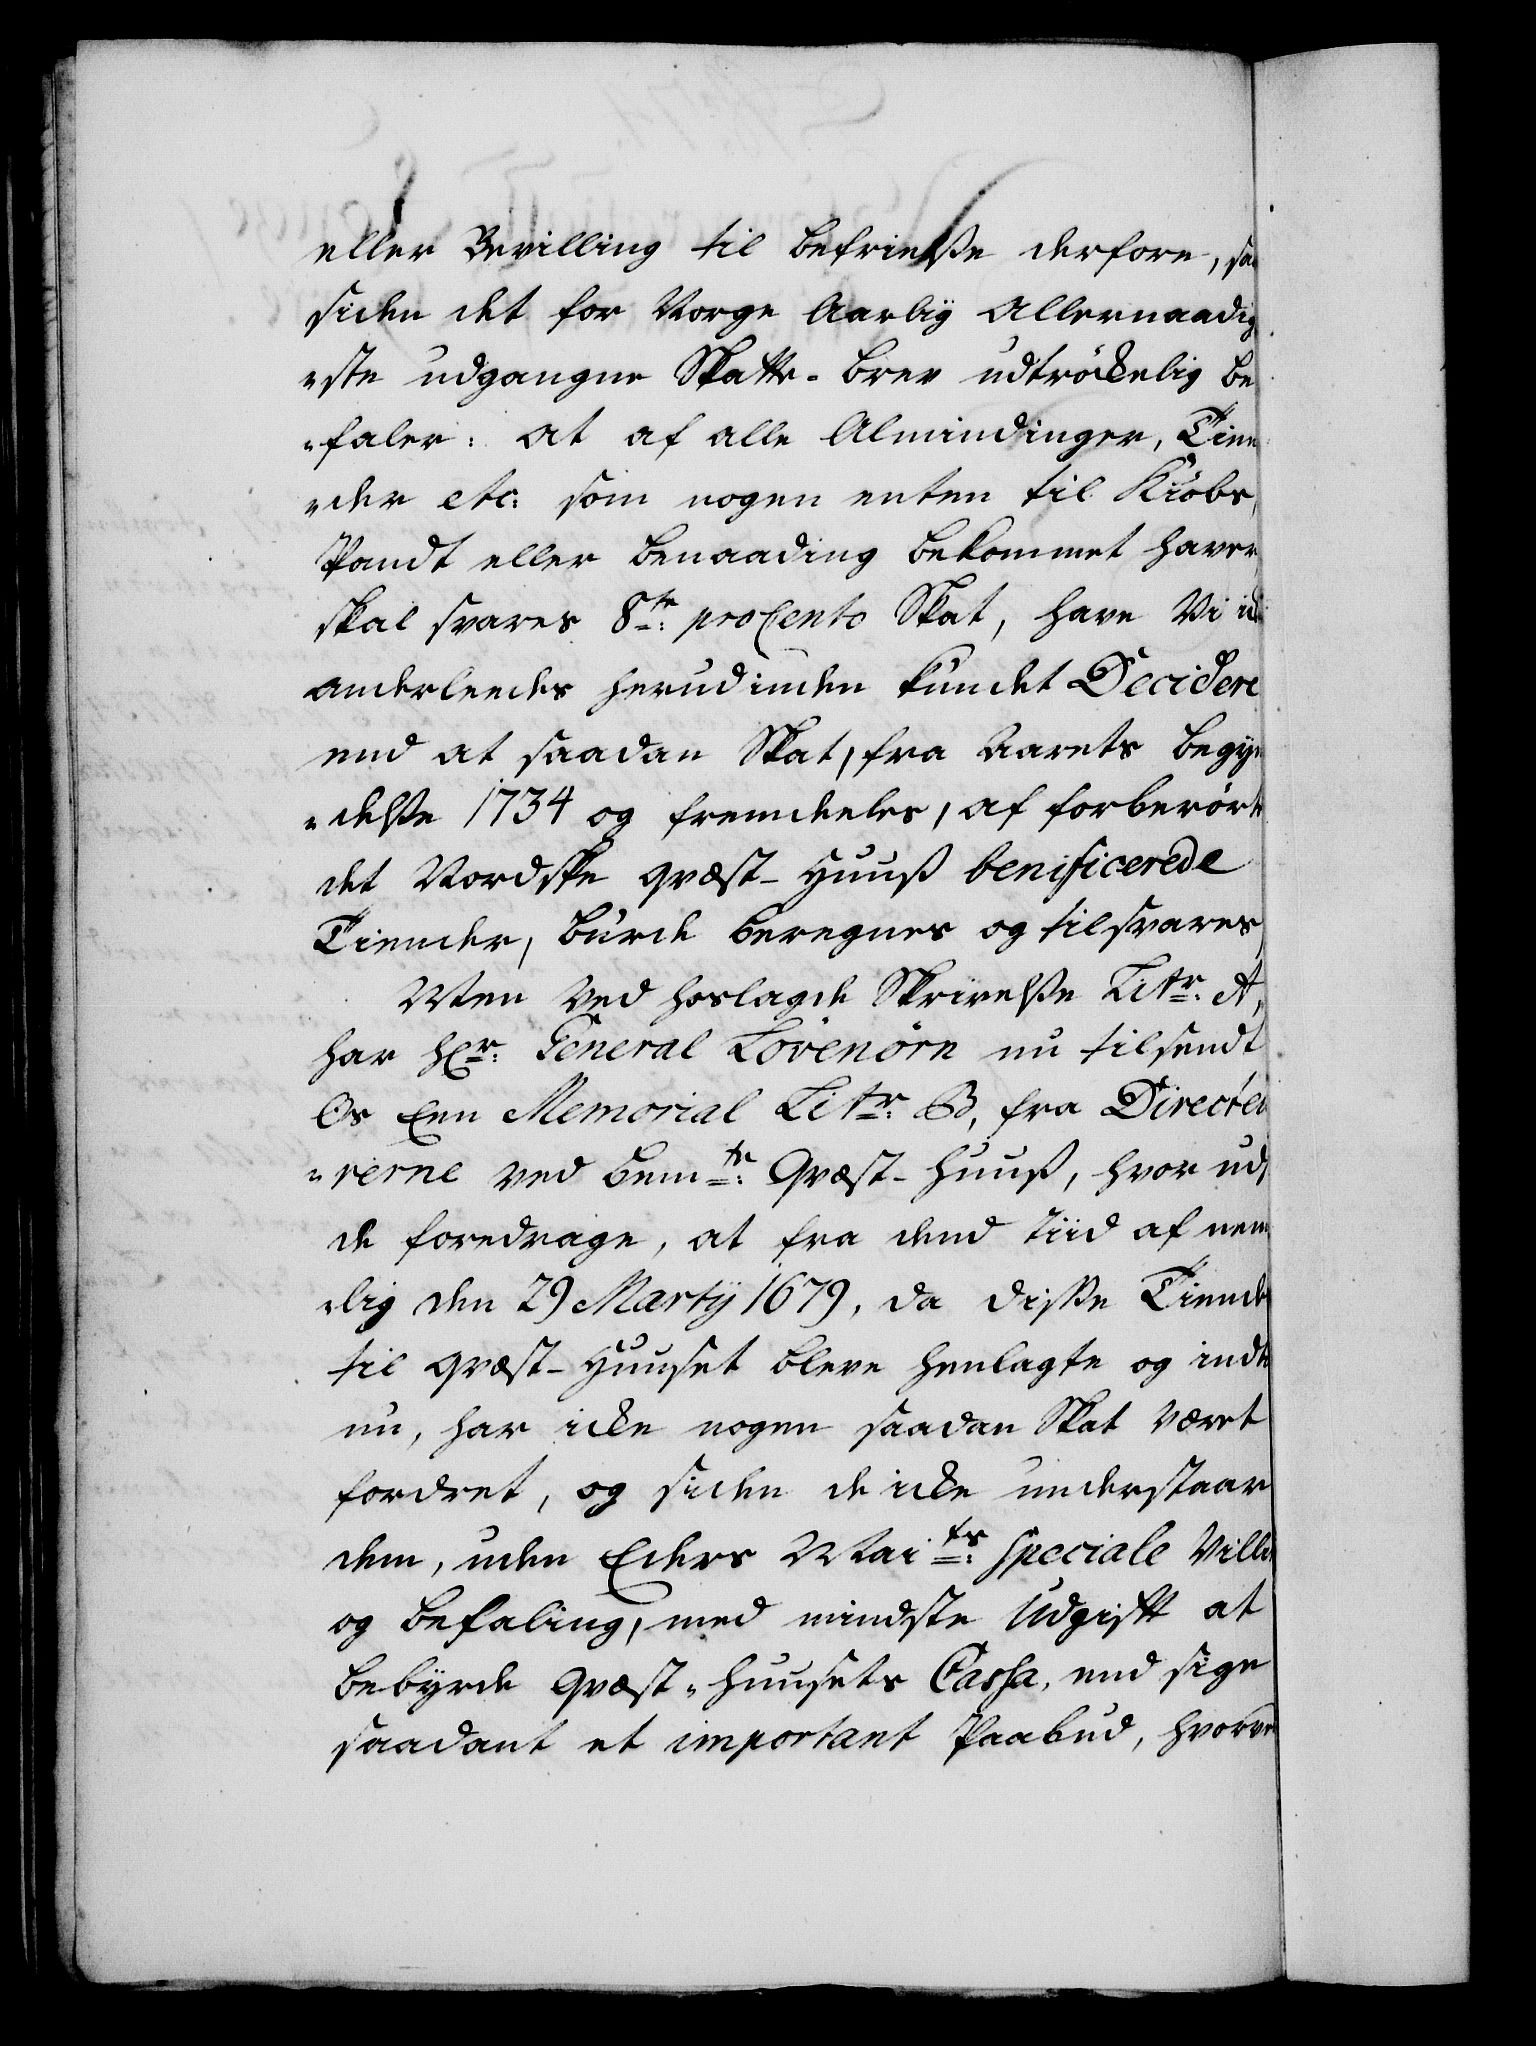 eller Bevilling til befrielße derfore, saa
siden det for Norge Aarlig Allernaadig
"ste udgangne Skatte-brev udtröckelig be
"faler: at af alle Almindinger, Tien
"der etc: som nogen enten til Kiöbs,
Pandt eller benaading bekommet haver,
skal svares 8te: proCento Skat, have Vi ick
anderleedes herudinden kundet Decidere
end at saadan Skat, fra Aarets begyn
"delße 1734 og fremdeles, af forberörte
det Nordske qvæst-Huuß benificerede
Tiender, burde beregnes og tilsvares,
Men ved hoslagde Skrivelße Litr: A,
har Hr: General Lövenörn nu tilsendt
Os Een Memorial Litr: B, fra Directeu
"rerne ved bemte: Qvæst-Huuß, hvor udi
de foredrage, at fra dend tiid af nem
"lig den 29 Martij 1679, da disße Tiende
til qvæst-Huuset bleve henlagte og indtil
nu, har icke nogen saadan Skat været
fordret, og siden de icke understaar
dem, uden Eders Maits: speciale Villie
og befaling, med mindste Udgift at
bebyrde Qvæst-huusets Cassa, end sige
saadant et important Paabud, hvorved